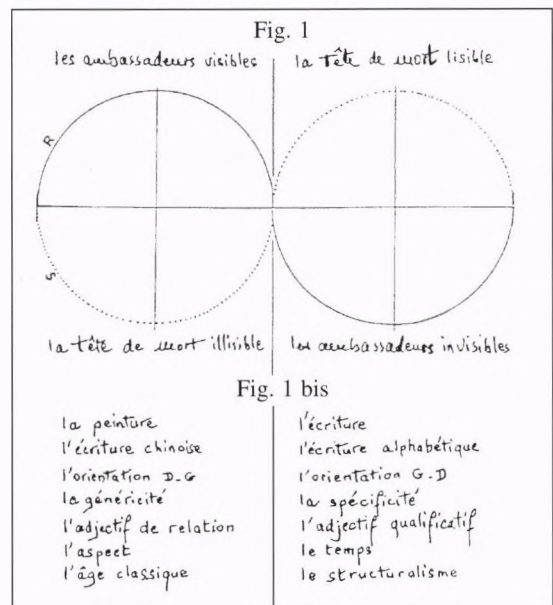 Fig. 1
les ambassadeurs visibles
la tête de mort lisible
R
S
la tête de mort illisible
les ambassadeurs invisibles
Fig. 1 bis
la peinture
l'écriture chinoise
l'orientation D-G
la généricité
l'adjectif de relation
l'aspect
l'âge classique
l'écriture
l'écriture alphabétique
l'orientation G-D
la spécificité
l'adjectif qualificatif
le temps
le structuralisme